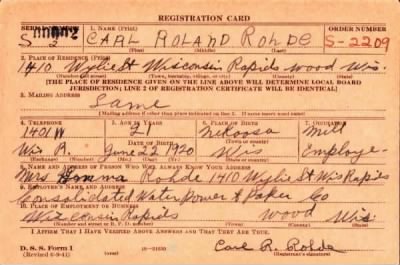 REGISTRATION CARD
SERIAL NUMBER 1. NAME (Print) ORDER NUMBER
S- 2 CARL ROLAND Rohde S-2209
(First) (Middle) (Last)
2. PLACE OF RESIDENCE (Print)
1410 Wylie St Wisconsin Rapids wood Wis.
(Number and street) (Town, township, village, or city) (County) (State)
[THE PLACE OF RESIDENCE GIVEN ON THE LINE ABOVE WILL DETERMINE LOCAL BOARD
JURISDICTION; LINE 2 OF REGISTRATION CERTIFICATE WILL BE IDENTICAL]
3. MAILING ADDRESS
Same
[Mailing address if other than place indicated on line 2. If same insert word same]
4. TELEPHONE 5. AGE IN YEARS 6. PLACE OF BIRTH 7. OCCUPATION
1401 W 21 Nekoosa Mill
DATE OF BIRTH (Town or county)
Wis R. June 22 1920 Wis Employe-
(Exchange) (Number) (Mo.) (Day) (Yr.) (State or country)
8. NAME AND ADDRESS OF PERSON WHO WILL ALWAYS KNOW YOUR ADDRESS
Mrs Emma Rohde 1410 Wylie St Wis Rapids
9. EMPLOYER'S NAME AND ADDRESS
Consolidated Water Power & Paper Co
10. PLACE OF EMPLOYMENT OR BUSINESS
Wisconsin Rapids wood Wis
(Number and street or R. F. D. number) (Town) (County) (State)
I AFFIRM THAT I HAVE VERIFIED ABOVE ANSWERS AND THAT THEY ARE TRUE.
D. S. S. Form 1
(Revised 6-9-41) (over) 16-21630 Carl R. Rohde
(Registrant's signature)